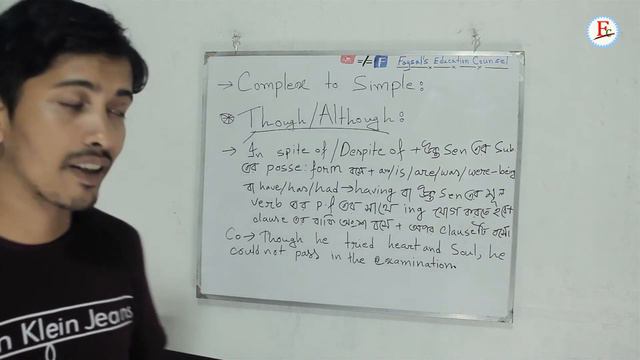 Fc
=/= f Faysal's Education Counsel
→ Complex to Simple:
⊛ Though/Although:
→ In spite of/Despite of + উক্ত Sen এর Sub
এর posse: form বসে + am/is/are/was/were-being
বা have/has/had → having বা উক্ত Sen এর মূল
verb এর p.f এর সাথে ing যোগ করতে হবে +
clause এর বাকি অংশ বসে + অপর clause টি বসে।
Co → Though he tried heart and Soul, he
could not pass in the examination.
n Klein Jeans